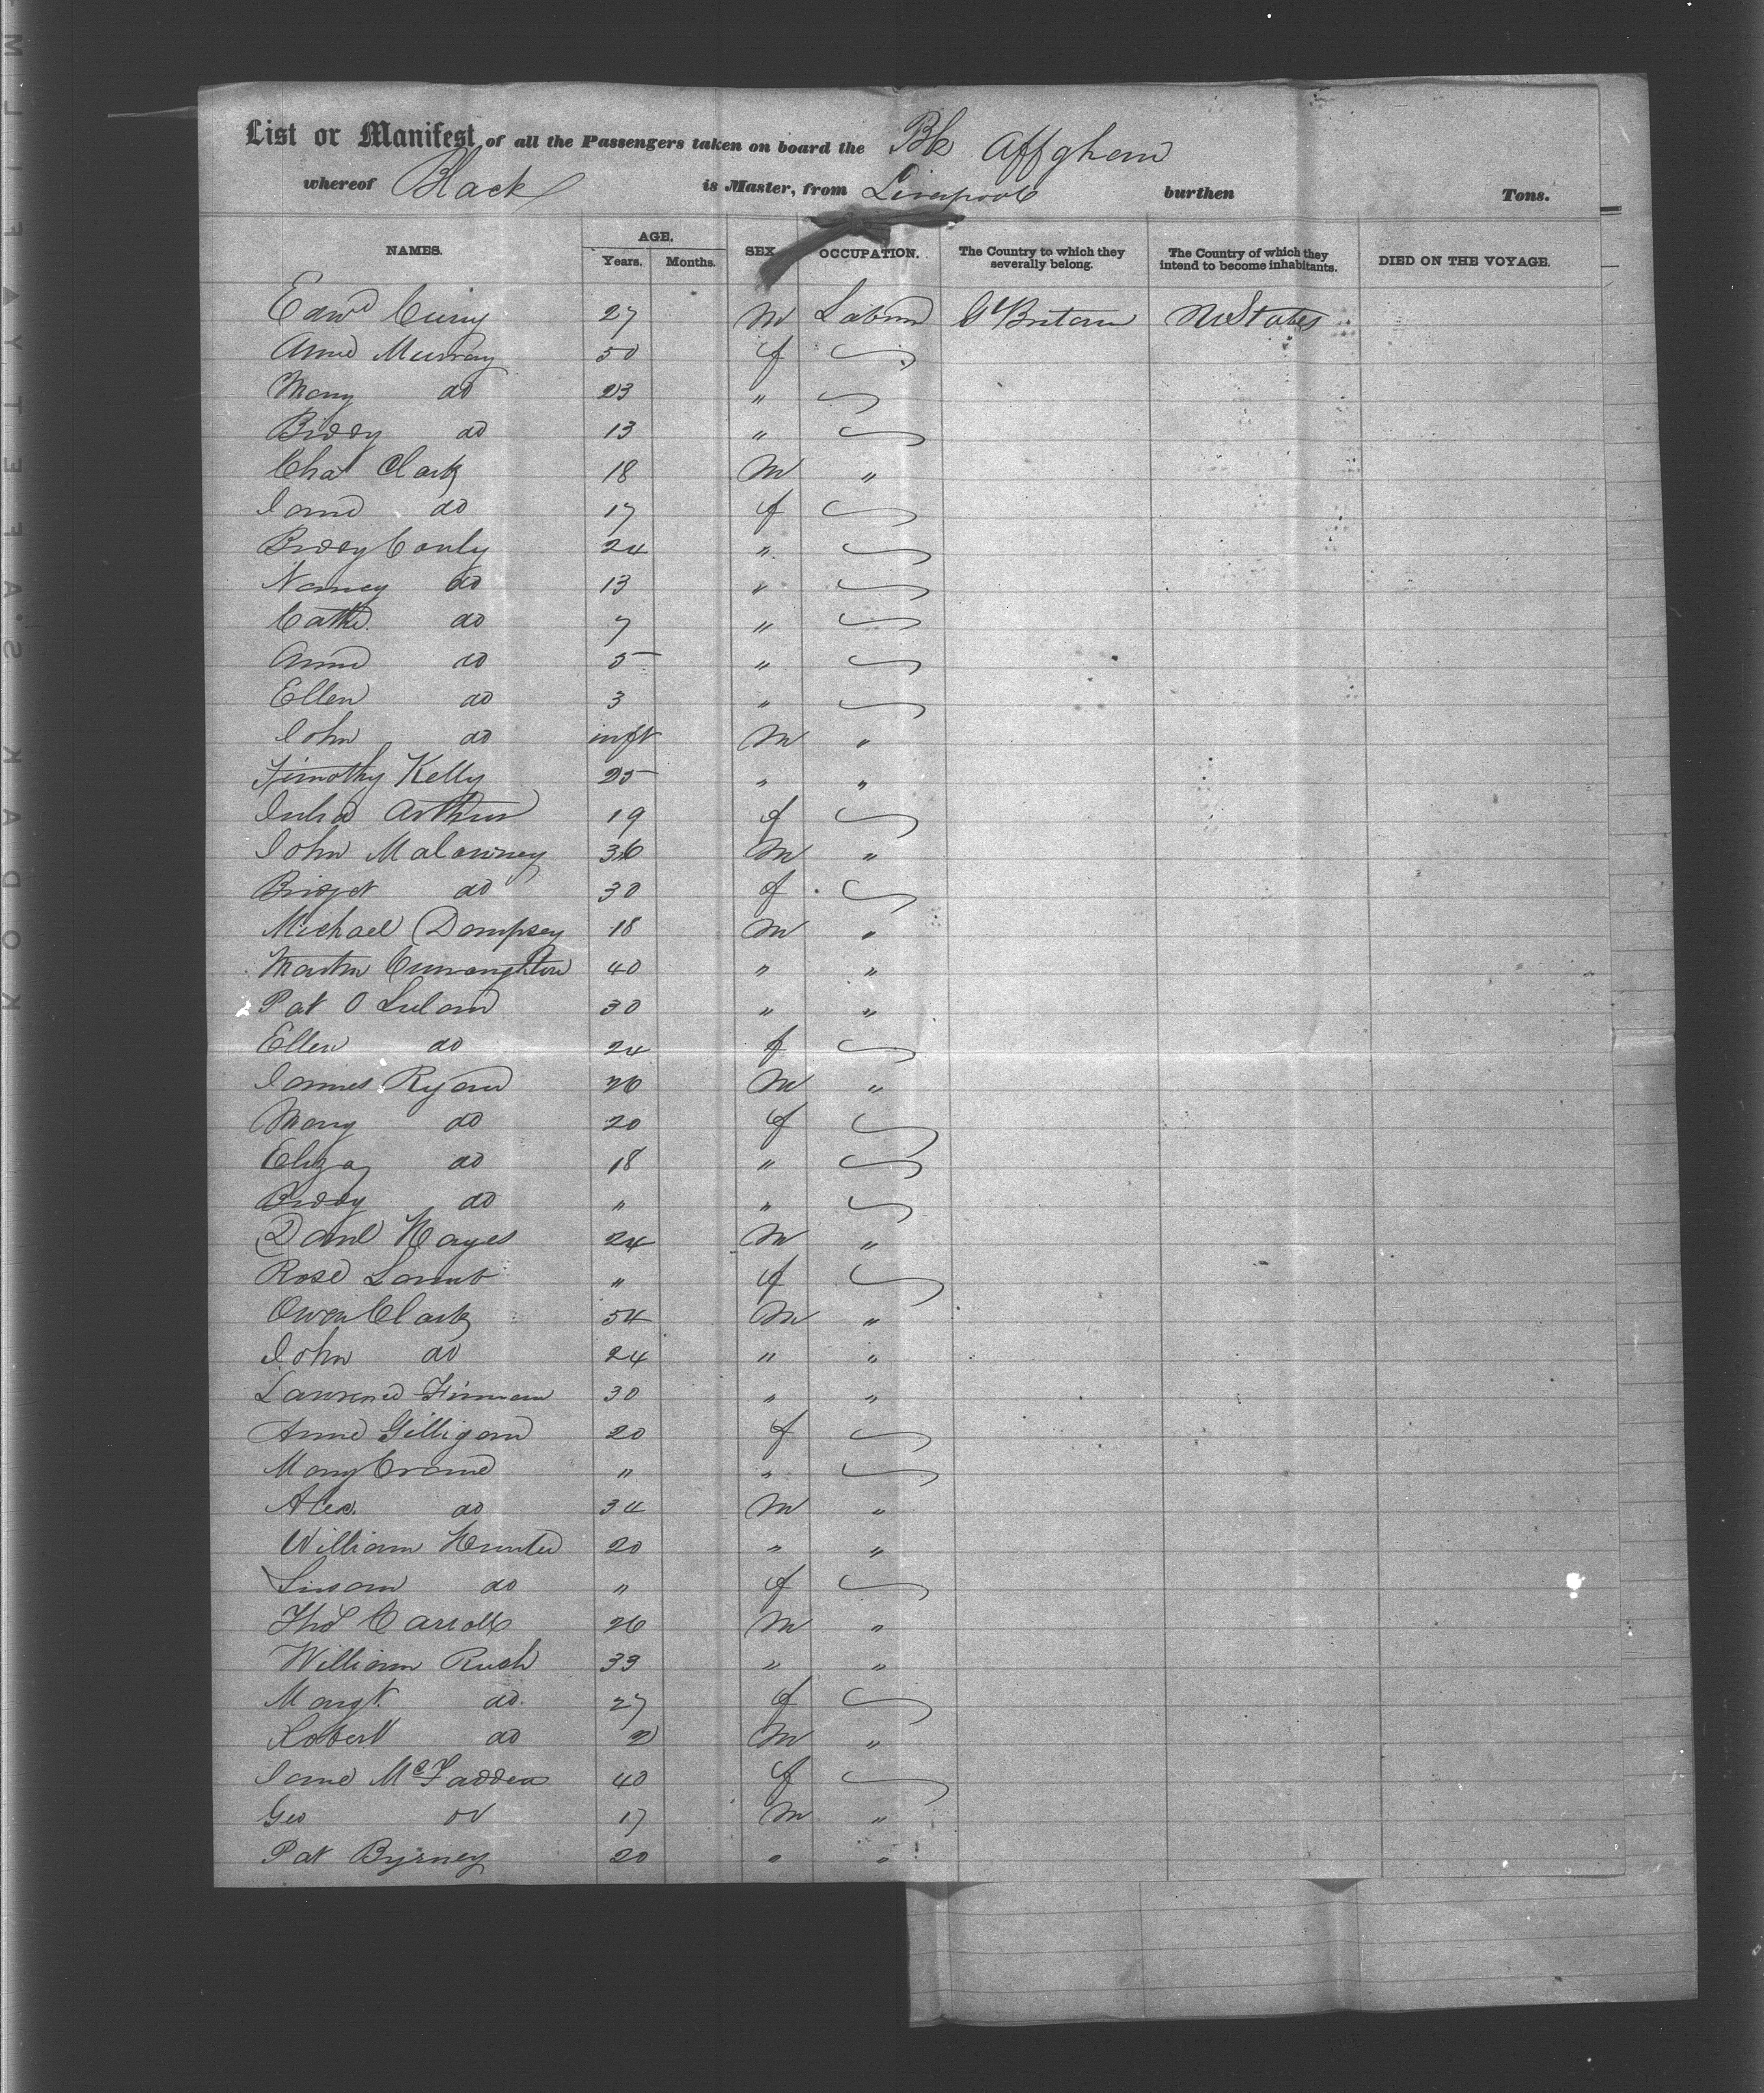 List or Manifest of all the Passengers taken on board the Bk Affghan
whereof Black is Master, from Liverpool burthen Tons.
NAMES. AGE. Years. Months. SEX OCCUPATION. The Country to which they severally belong. The Country of which they intend to become inhabitants. DIED ON THE VOYAGE.
Edwd 27 M Labourer Gt Britain U States
Anne Murray 50 f
Mary do 23 "
Biddy do 13 "
Chas Clark 18 M "
Jane do 17 f
Biddy Conly 24 "
Nancy do 13 "
Cathe. do 7 "
Anne do 5 "
Ellen do 3 "
John do inft M "
Timothy Kelly 25 " "
Julia Arthur 19 f
John Malowney 36 M "
Bridget do 30 f
Michael Dempsey 18 M "
Martin 40 " "
Pat O 30 " "
Ellen do 24 f
James Ryan 26 M "
Mary do 20 f
Eliza do 18 "
Biddy do " "
Danl Hayes 24 M "
Rose Lamb " f
Owen Clark 54 M "
John do 24 " "
Lawrence 30 " "
Anne Gilligan 20 f
Mary Crane " "
Alex. do 34 M "
William Hunter 20 " "
Susan do " f
Thos Carroll 26 M "
William Rush 33 " "
Margt. do. 27 f
Robert do 2 M "
Jane McFadden 40 f
Geo do 17 M "
Pat Byrney 20 " "
KODAK S.A.FETY